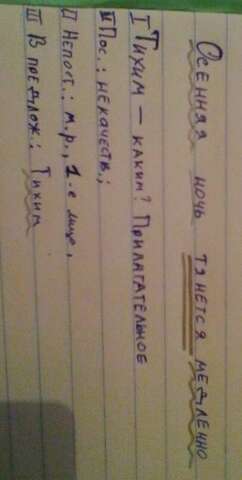 Осенняя ночь тянется медленно
I Тихим – каким? Прилагательное
II Пос.: некачеств.;
II Непост.: м.р., 1-е лицо,
III В предлож.: Тихим